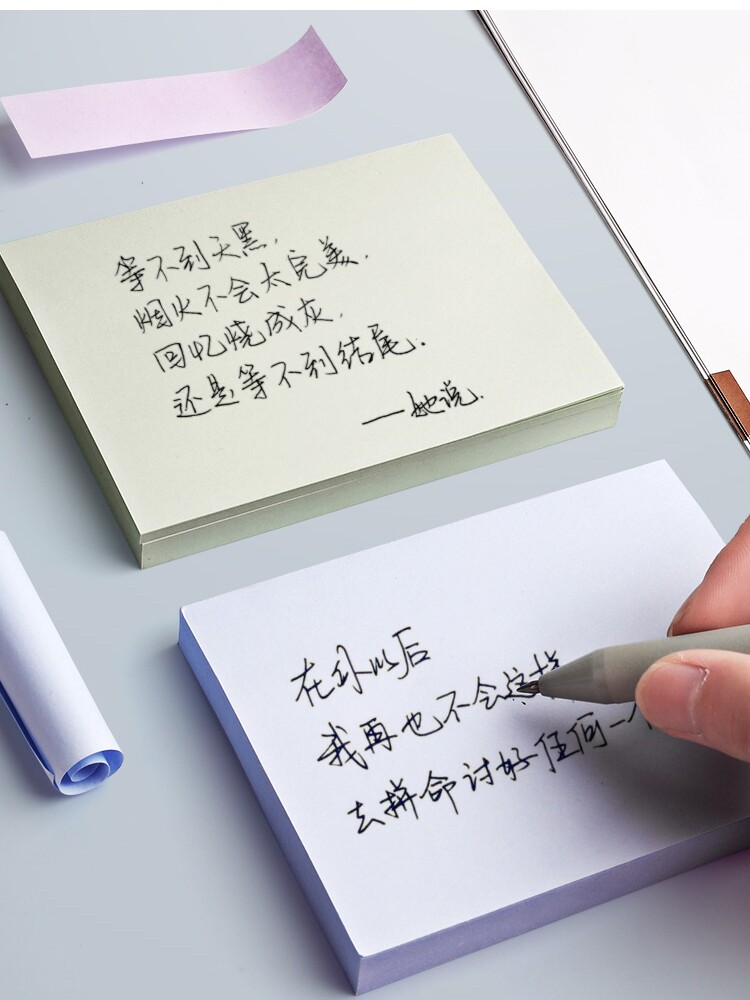 等不到天黑,
烟火不会太完美,
回忆烧成灰,
还是等不到结尾.
——她说.
在那以后
我再也不会这
去拼命讨好任何一